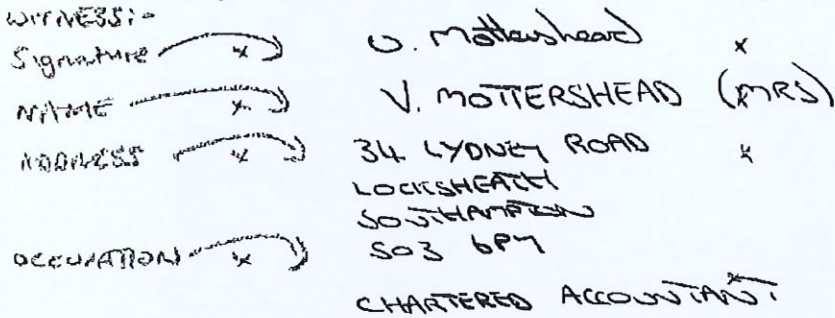 WITNESS:-
Signature x V. Mottershead x
NAME x V. MOTTERSHEAD (MRS)
ADDRESS x 34 LYDNEY ROAD x
LOCKSHEATH
SOUTHAMPTON
OCCUPATION x SO3 6PY
CHARTERED ACCOUNTANT.